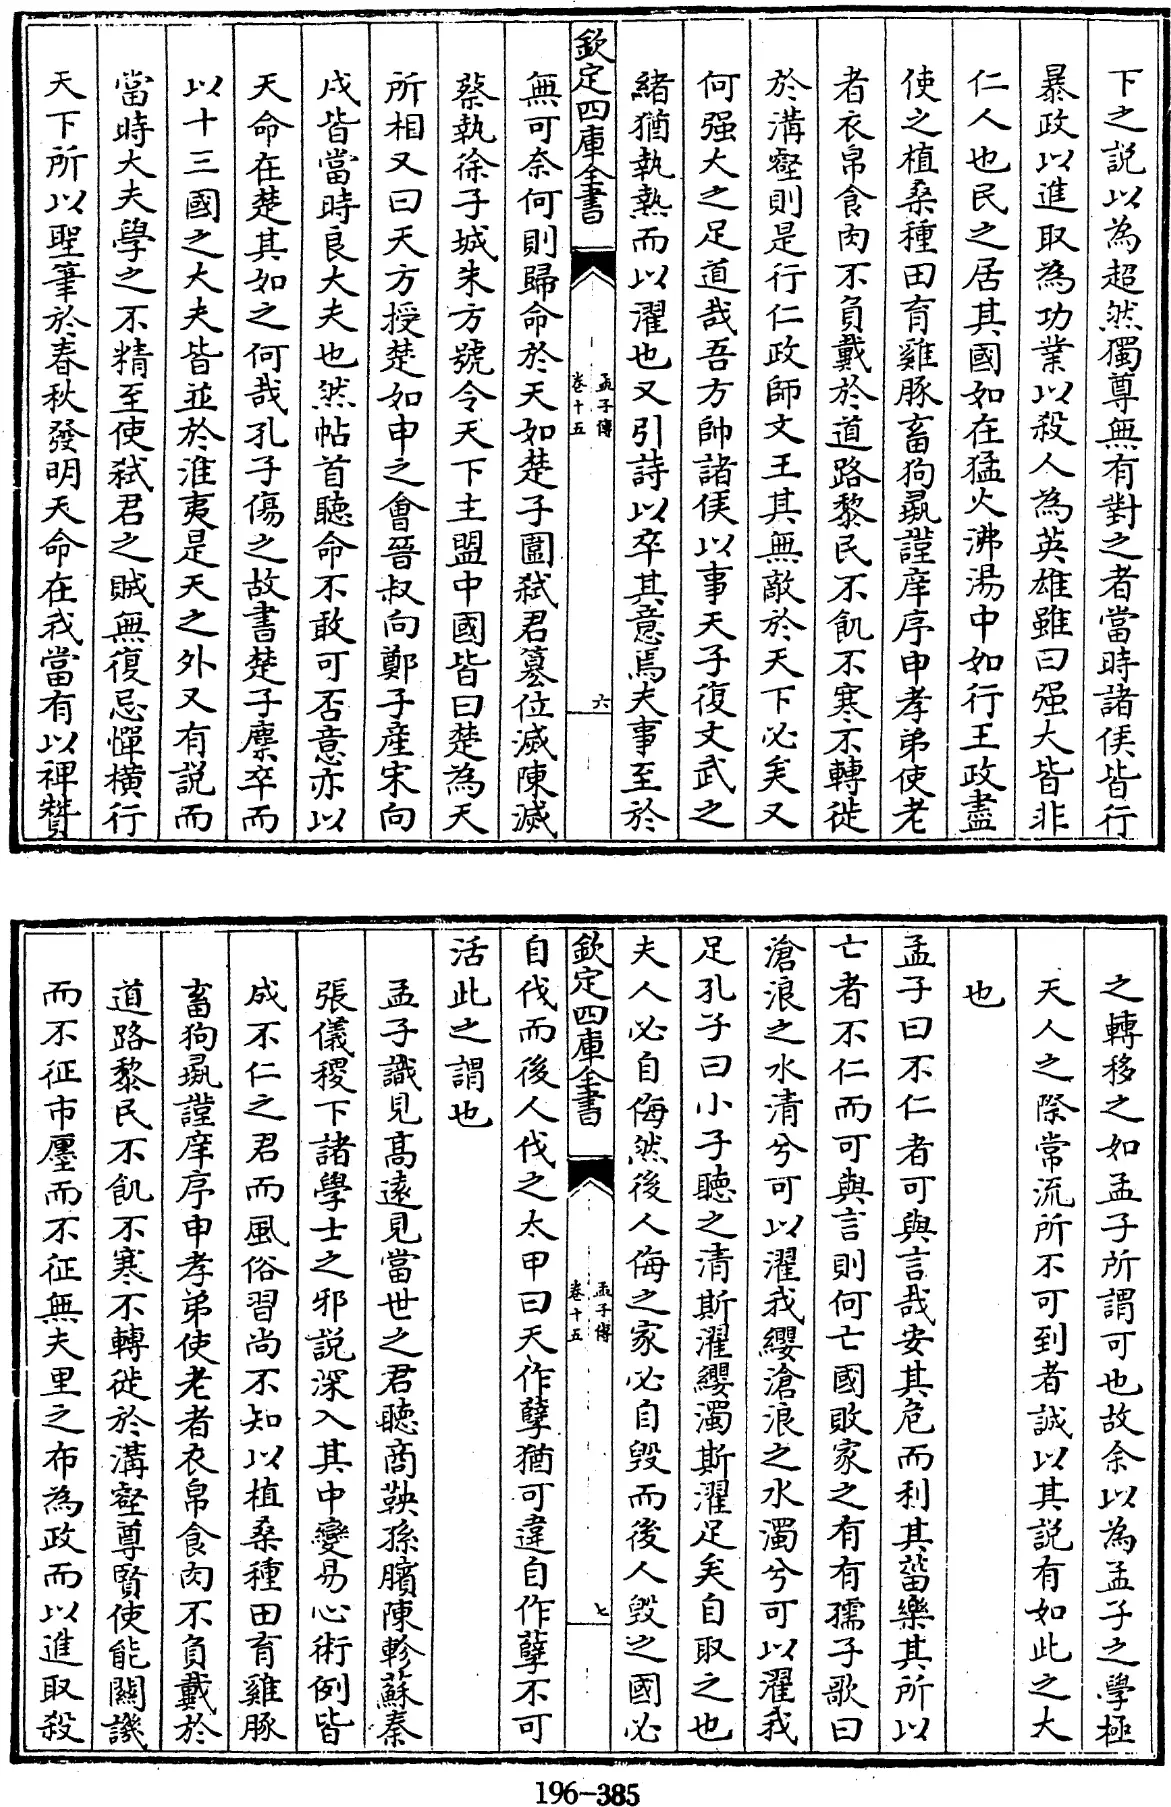 下之説以為超然獨尊無有對之者當時諸侯皆行
暴政以進取為功業以殺人為英雄雖曰强大皆非
仁人也民之居其國如在猛火沸湯中如行王政盡
使之植桑種田育雞豚畜狗彘謹庠序申孝弟使老
者衣帛食肉不負戴於道路黎民不飢不寒不轉徙
於溝壑則是行仁政師文王其無敵於天下必矣又
何强大之足道哉吾方帥諸侯以事天子復文武之
緒猶執熱而以濯也又引詩以卒其意焉夫事至於
欽定四庫全書
孟子傳
卷十五
六
無可奈何則歸命於天如楚子圍弑君簒位滅陳滅
蔡執徐子城朱方號令天下主盟中國皆曰楚為天
所相又曰天方授楚如申之會晉叔向鄭子產宋向
戌皆當時良大夫也然帖首聽命不敢可否意亦以
天命在楚其如之何哉孔子傷之故書楚子麇卒而
以十三國之大夫皆並於淮夷是天之外又有説而
當時大夫學之不精至使弑君之賊無復忌憚横行
天下所以聖筆於春秋發明天命在我當有以裨贊
之轉移之如孟子所謂可也故余以為孟子之學極
天人之際常流所不可到者誠以其説有如此之大
也
孟子曰不仁者可與言哉安其危而利其菑樂其所以
亡者不仁而可與言則何亡國敗家之有有孺子歌曰
滄浪之水清兮可以濯我纓滄浪之水濁兮可以濯我
足孔子曰小子聽之清斯濯纓濁斯濯足矣自取之也
夫人必自侮然後人侮之家必自毁而後人毁之國必
欽定四庫全書
孟子傳
卷十五
七
自伐而後人伐之太甲曰天作孽猶可違自作孽不可
活此之謂也
孟子識見高遠見當世之君聽商鞅孫臏陳軫蘇秦
張儀稷下諸學士之邪説深入其中變易心術例皆
成不仁之君而風俗習尚不知以植桑種田育雞豚
畜狗彘謹庠序申孝弟使老者衣帛食肉不負戴於
道路黎民不飢不寒不轉徙於溝壑尊賢使能關譏
而不征市廛而不征無夫里之布為政而以進取殺
196-385